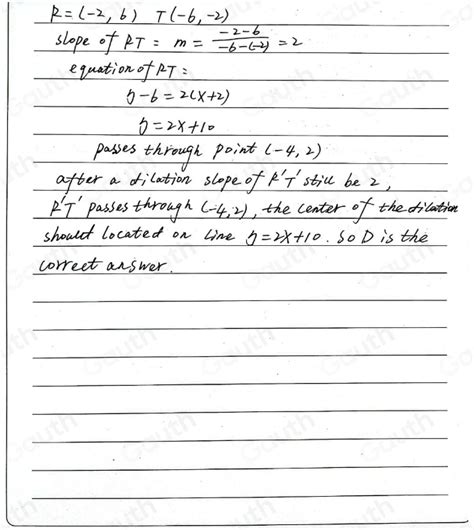 R = (-2, 6)  T(-6, -2)
slope of RT = m = \frac{-2-6}{-6-(-2)} = 2
equation of RT =
y-6 = 2(x+2)
y = 2x+10
passes through point (-4, 2)
after a dilation slope of R'T' still be 2,
R'T' passes through (-4, 2), the center of the dilation
should located on line y=2x+10. So D is the
correct answer.